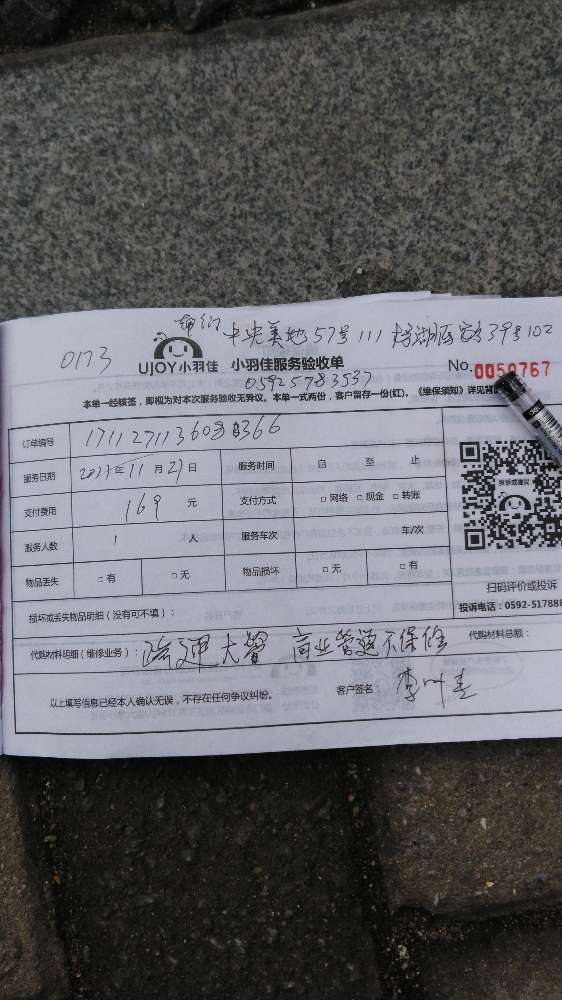 中央美地57号111 39号102
0173
UJOY小羽佳 小羽佳服务验收单
No.0050767
05925783537
本单一经核签，即视为对本次服务验收无异议。本单一式两份，客户留存一份(红)。《维保须知》详见背
订单编号
服务日期 年11月27日 服务时间 自 至 止
支付费用 169 元 支付方式 □网络 □现金 □转账
服务人数 1 人 服务车次 车/次
物品丢失 □有 □无 物品损坏 □无 □有
投诉或建议
扫码评价或投诉
投诉电话：0592-517888
损坏或丢失物品明细（没有可不填）：
代购材料明细（维修业务）：疏通大管 商业管道不保修 代购材料总额：
以上填写信息已经本人确认无误，不存在任何争议纠纷。 客户签名：